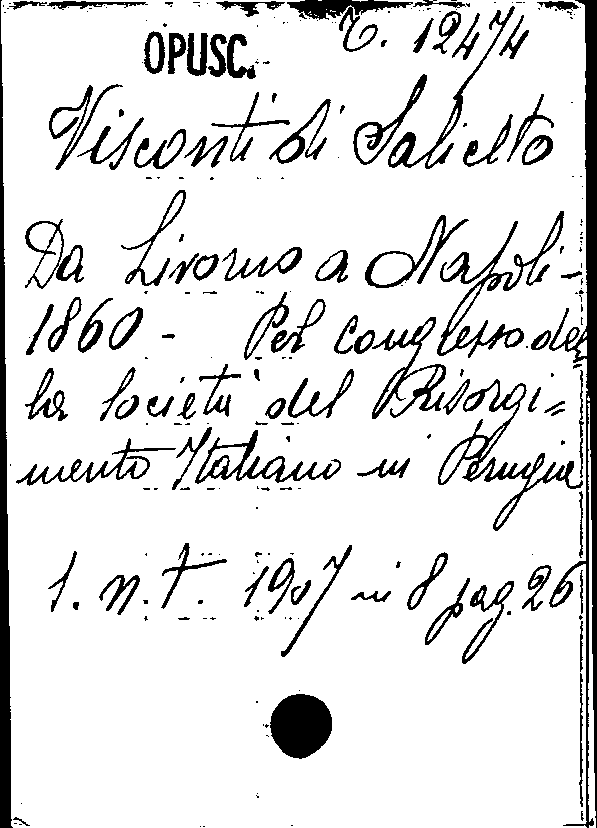 OPUSC. T. 12474
Visconti di Saliceto
Da Livorno a Napoli -
1860 - Pel congresso del
la Società del Risorgi=
mento Italiano in Perugia
s. n. t. 1907 in 8 pag. 26